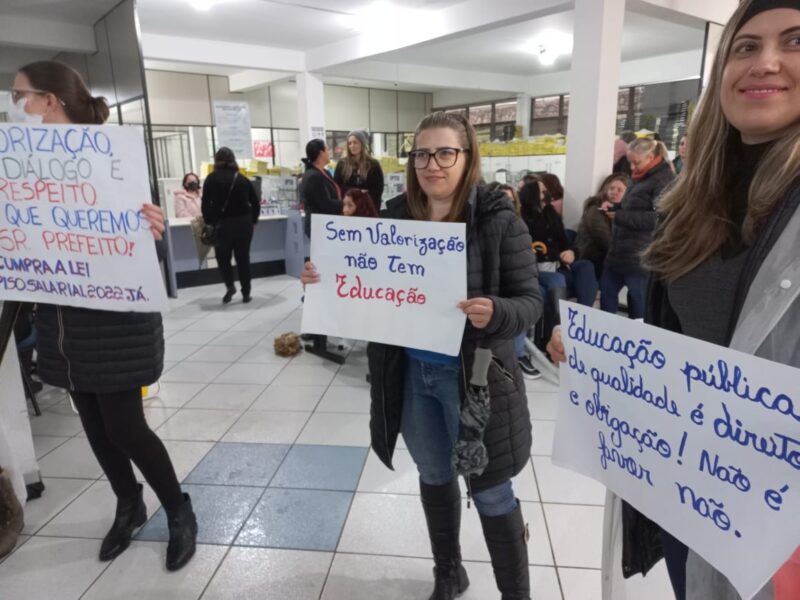 ORIZAÇÃO,
DIÁLOGO E
RESPEITO
QUE QUEREMOS
SR. PREFEITO!
CUMPRA A LEI
PISO SALARIAL 2022 JÁ.
Sem Valorização
não Tem
Educação
Educação pública
de qualidade é direito
e obrigação! Não é
favor não.